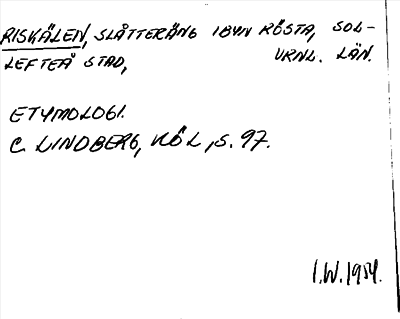 RISKÄLEN, SLÅTTERÄNG I BYN RÖSTA, SOL-
LEFTEÅ STAD, VRNL. LÄN.
ETYMOLOGI.
C. LINDBERG, KÖL, S. 97.
I.W. 1954.